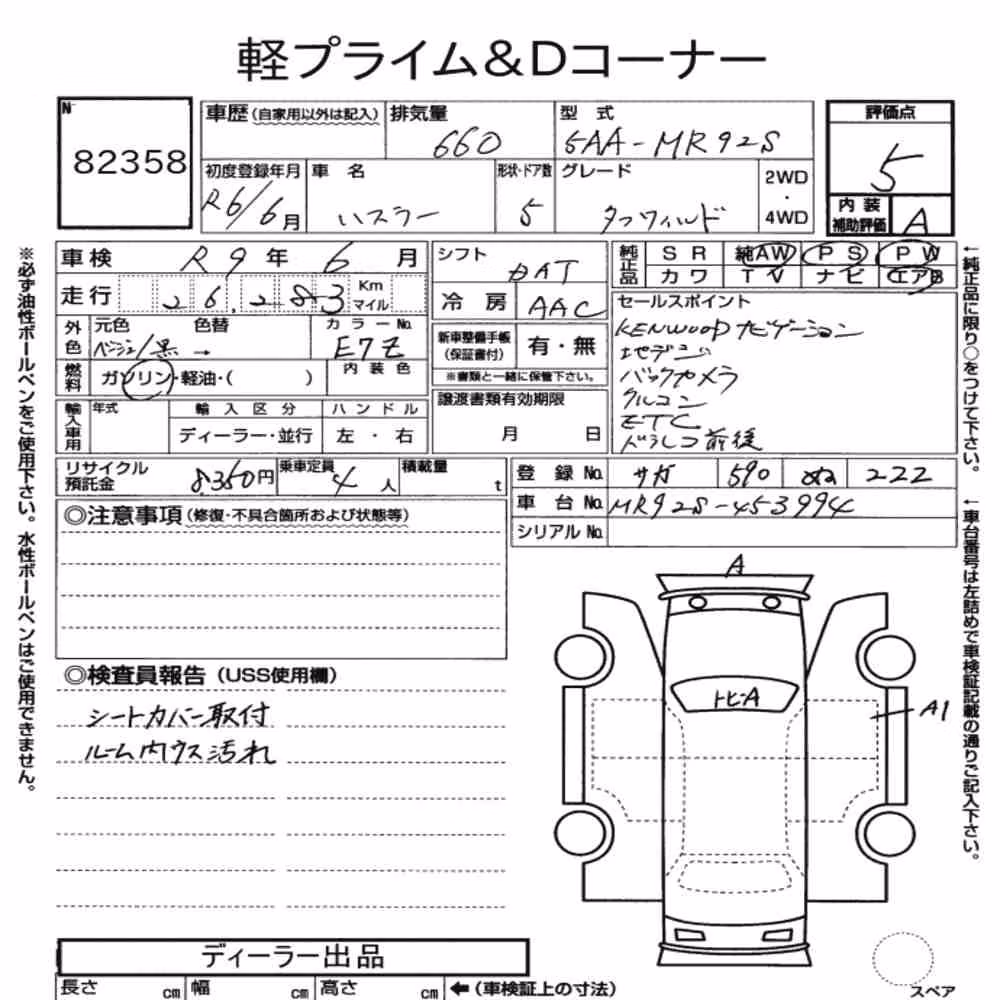 軽プライム&Dコーナー
No
82358
車歴(自家用以外は記入) 排気量 型式 評価点
660 5AA-MR92S 5
初度登録年月 車名 形状・ドア数 グレード 2WD・4WD
R6/6月 ハスラー 5 タフワイルド
内装補助評価 A
車検 R9年6月 シフト DAT
純正品 SR 純AW PS PW
カワ TV ナビ エアB
走行 26,283 Km マイル
冷房 AAC
セールスポイント
KENWOODナビゲーション
地デジ
バックカメラ
クルコン
ETC
ドラレコ前後
外色 元色 色替 カラーNo.
ベージュ/黒→ E7Z
新車整備手帳(保証書付) 有・無
※書類と一緒に保管下さい。
燃料 ガソリン・軽油・( ) 内装色
譲渡書類有効期限
月 日
輸入車用 年式 輸入区分 ハンドル
ディーラー・並行 左・右
リサイクル預託金 8,360円 乗車定員 4人 積載量 t
登録No. サガ 590 ぬ 222
車台No. MR92S-453994
シリアルNo.
◎注意事項(修復・不具合箇所および状態等)
◎検査員報告(USS使用欄)
シートカバー取付
ルーム内ウス汚れ
A
トビ-A
A1
ディーラー出品
長さ cm 幅 cm 高さ cm ←(車検証上の寸法)
スペア
※必ず油性ボールペンをご使用下さい。水性ボールペンはご使用できません。
←純正品に限り○をつけて下さい。
←車台番号は左詰めで車検証記載の通りご記入下さい。